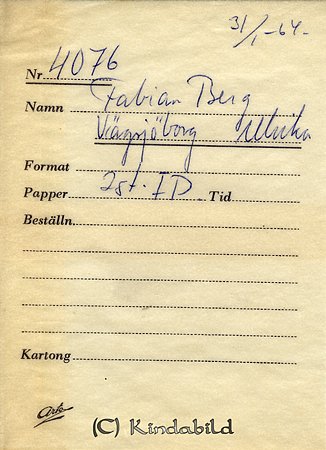 31/1-64-
Nr 4076
Namn Fabian Berg
Vägsjöborg Ulrika
Format
Papper 2st. ID Tid
Beställn.
Kartong
Ark
(C) Kindabild